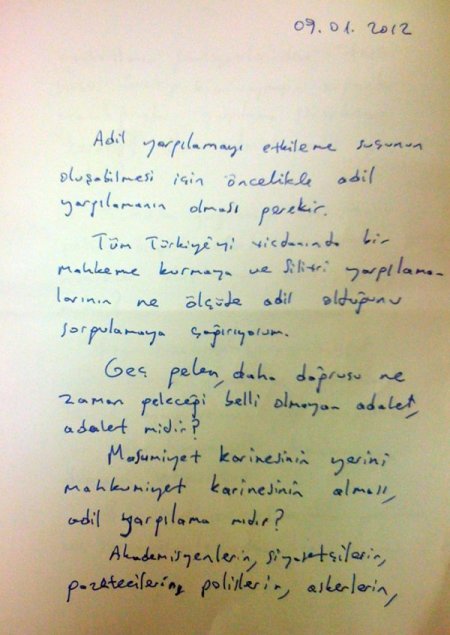 09.01.2012
Adil yargılamayı etkileme suçunun
oluşabilmesi için öncelikle adil
yargılamanın olması gerekir.
Tüm Türkiye'yi vicdanında bir
mahkeme kurmaya ve Silivri yargılama-
larının ne ölçüde adil olduğunu
sorgulamaya çağırıyorum.
Geç gelen, daha doğrusu ne
zaman geleceği belli olmayan adalet,
adalet midir?
Masumiyet karinesinin yerini
mahkumiyet karinesinin alması,
adil yargılama mıdır?
Akademisyenlerin, siyasetçilerin,
gazetecilerin, polislerin, askerlerin,